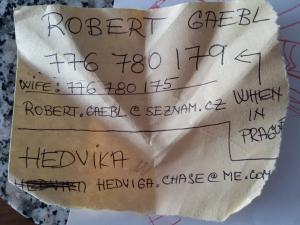 ROBERT GAEBL
776 780 179
WIFE: 776 780 175
ROBERT.GAEBL@SEZNAM.CZ
WHEN
IN
PRAGUE
HEDVIKA
HEDVIGA.CHASE@ME.COM